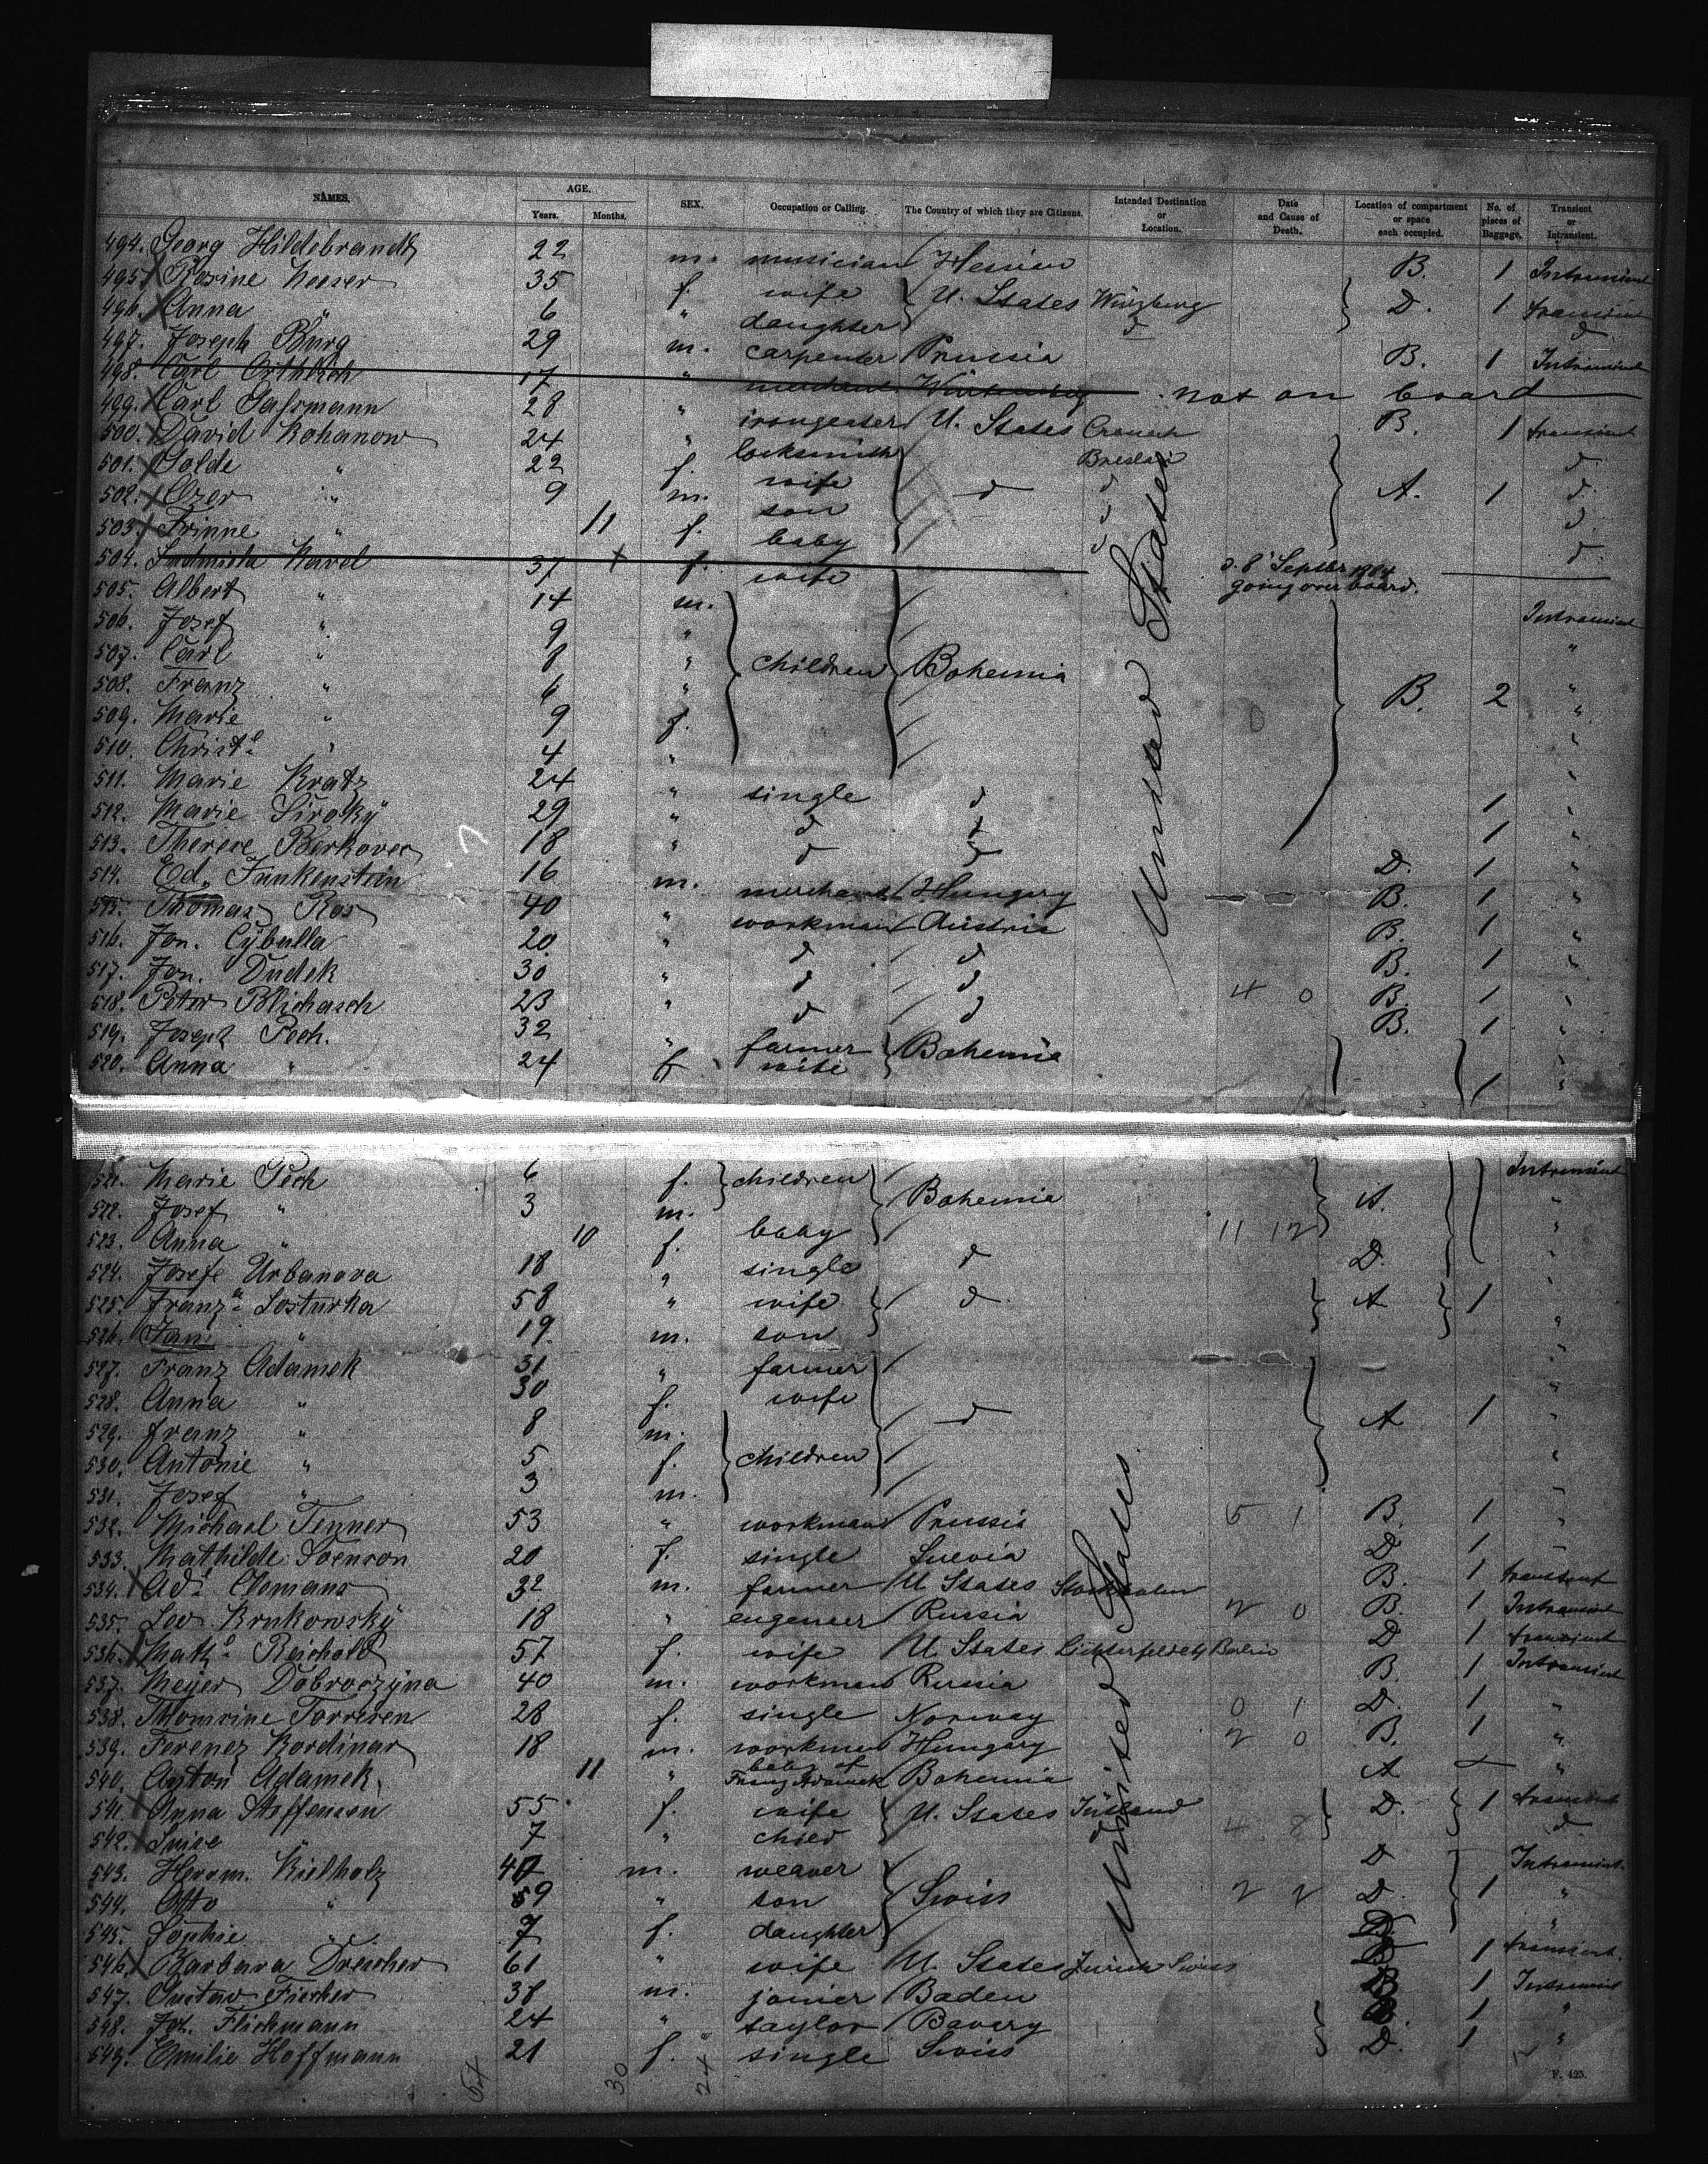 NAMES. AGE. Years. Months. SEX. Occupation or Calling. The Country of which they are Citizens. Intended Destination or Location. Date and Cause of Death. Location of compartment or space each occupied. No. of pieces of Baggage. Transient or Intransient.
494. Georg Hildebrandt 22 m. musician Hessien B. 1 Intransient
495. Rosine 35 f. wife U. States Würzburg D. 1 transient
496. Anna " 6 " daughter d d
497. Joseph Bürg 29 m. carpenter Prussia B. 1 Intransient
498. Carl 17 " merchant Würtemberg not on board
499. Carl Gassmann 28 " U. States B. 1 transient
500. David Kohanow 24 " locksmith Breslau d
501. Golde " 22 f. wife d d A. 1 d
502. Ozer " 9 m. son d d
503. Frinne " 11 f. baby d d
504. Ludmila Havel 37 f. wife d. 8 Septbr going over board.
505. Albert " 14 m. Intransient
506. Josef " 9 " "
507. Carl " 8 " children Bohemia "
508. Franz " 6 " B. 2 "
509. Marie " 9 f. "
510. Christ. " 4 " "
511. Marie Kratz 24 " single d "
512. Marie Sirosky 29 " d d 1 "
513. Therese Berkovec 18 " d d 1 "
514. Ed. Funkenstein 16 m. merchant Hungary D. 1 "
515. Thomas Kos 40 " workman Austria B. 1 "
516. Jon. Cybulla 20 " d d B. 1 "
517. Jon. Dudek 30 " d d B. 1 "
518. Peter Blichasch 23 " d d 4 0 B. 1 "
519. Joseph Pech. 32 " farmer Bohemia B. 1 "
520. Anna " 24 f wife 1 "
521. Marie Pech 6 f. children Intransient
522. Josef " 3 m. Bohemia A. "
523. Anna " 10 f. baby 11 12 "
524. Josefe Urbanova 18 " single d D. "
525. Franz.a Losturka 58 " wife d A 1 "
526. Jan " 19 m. son "
527. Franz Adamek 31 " farmer "
528. Anna " 30 f. wife "
529. Franz " 8 m. d A 1 "
530. Antonie " 5 f. children "
531. Josef " 3 m. "
532. Michael Tenner 53 " workman Prussia 5 1 B. 1 "
533. Mathilde Svenson 20 f. single Suevia D. 1 "
534. Ad. Clemans 32 m. farmer U. States Stockholm B. 1 transient
535. Leo Krukowsky 18 " engeneer Russia 2 0 B. 1 Intransient
536. Math. Reichold 57 f. wife U. States Lichterfelde b/ Berlin D 1 transient
537. Meyer Dobroczyna 40 m. workman Russia B. 1 Intransient
538. Thomine Torresen 28 f. single Norway 0 1 D. 1 "
539. Ferencz Kordinar 18 m. workman Hungary 2 0 B. 1 "
540. Anton Adamek 11 " baby of Franz Adamek Bohemia A "
541. Anna Steffensen 55 f. wife U. States Jütland D. 1 transient
542. Luise " 7 " chied d 4 8 d
543. Herom. Kielholz 40 m. weaver D Intransient
544. Otto " 9 " son Swiss 2 2 D. 1 "
545. Sophie " 7 f. daughter D. "
546. Barbara Drescher 61 " wife U. States Zurich Swiss 1 transient
547. Gustav Fischer 38 m. joiner Baden B 1 Intransient
548. Jos. Flichmann 24 " taylor Bavary B. 1 "
549. Emilie Hoffmann 21 f. single Swiss D. 1 "
United States
United States
54 30 24
F. 425.